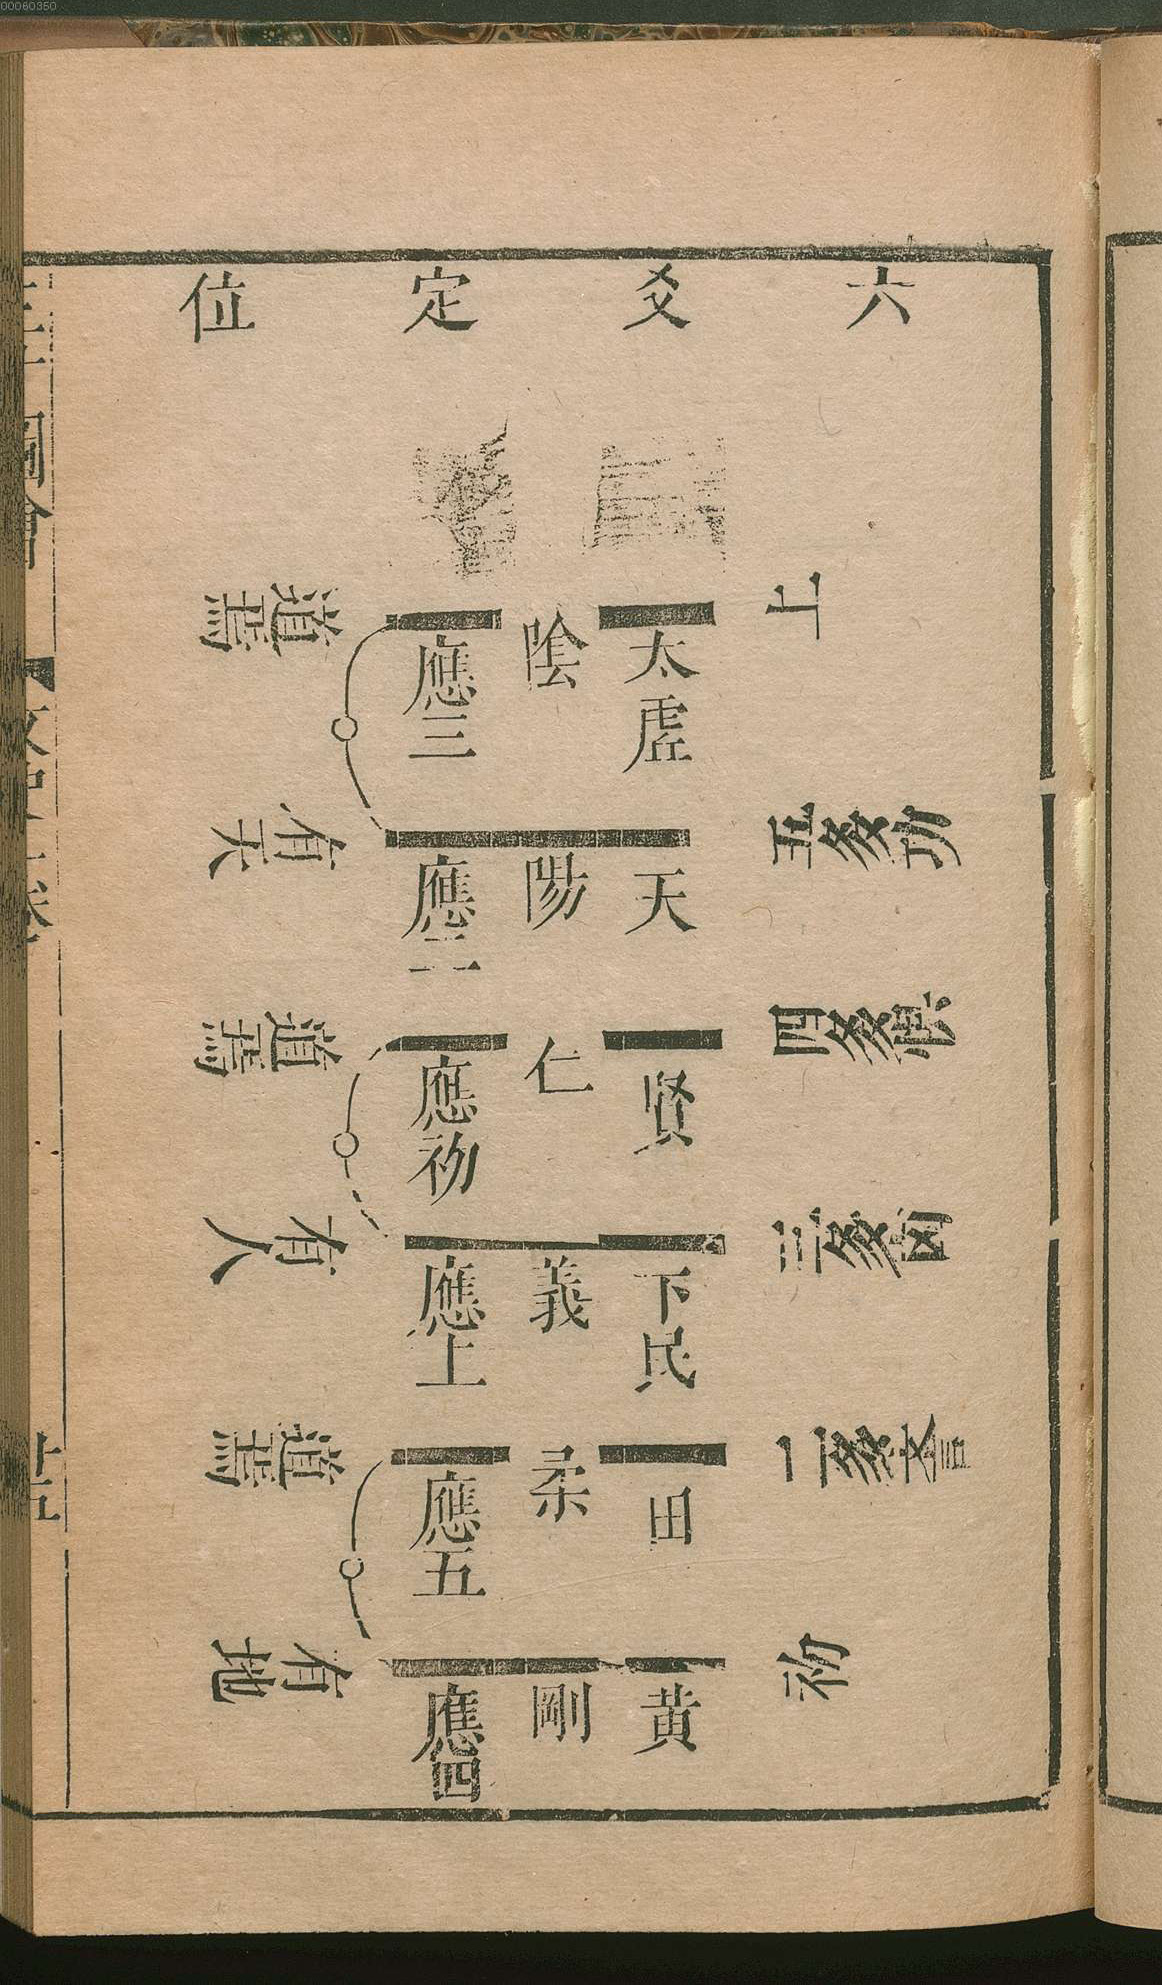 00060350
六爻定位
上
太虛
陰
應三
道焉
五多功
天
陽
應二
有天
四多懼
賢
仁
應初
道焉
三多凶
下民
義
應上
有人
二多譽
田
柔
應五
道焉
初
黃
剛
應四
有地